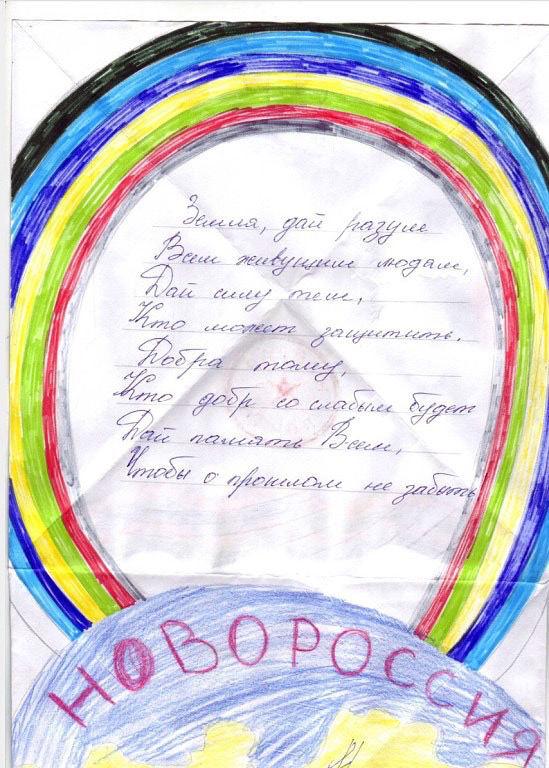 Земля, дай разум
Всем живущим людям,
Дай силу тем,
Кто может защитить.
Добра тому,
Кто добр со слабым будет
Дай память Всем,
Чтобы о прошлом не забыть
НОВОРОССИЯ